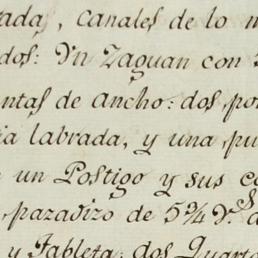 ada, canales de lo
dos: Yn Zaguan con
ntas de ancho: dos, po
ia labrada, y una pu
un Postigo y sus c
pazadizo de 5¾ v.s d
y Tableta: dos Quarto